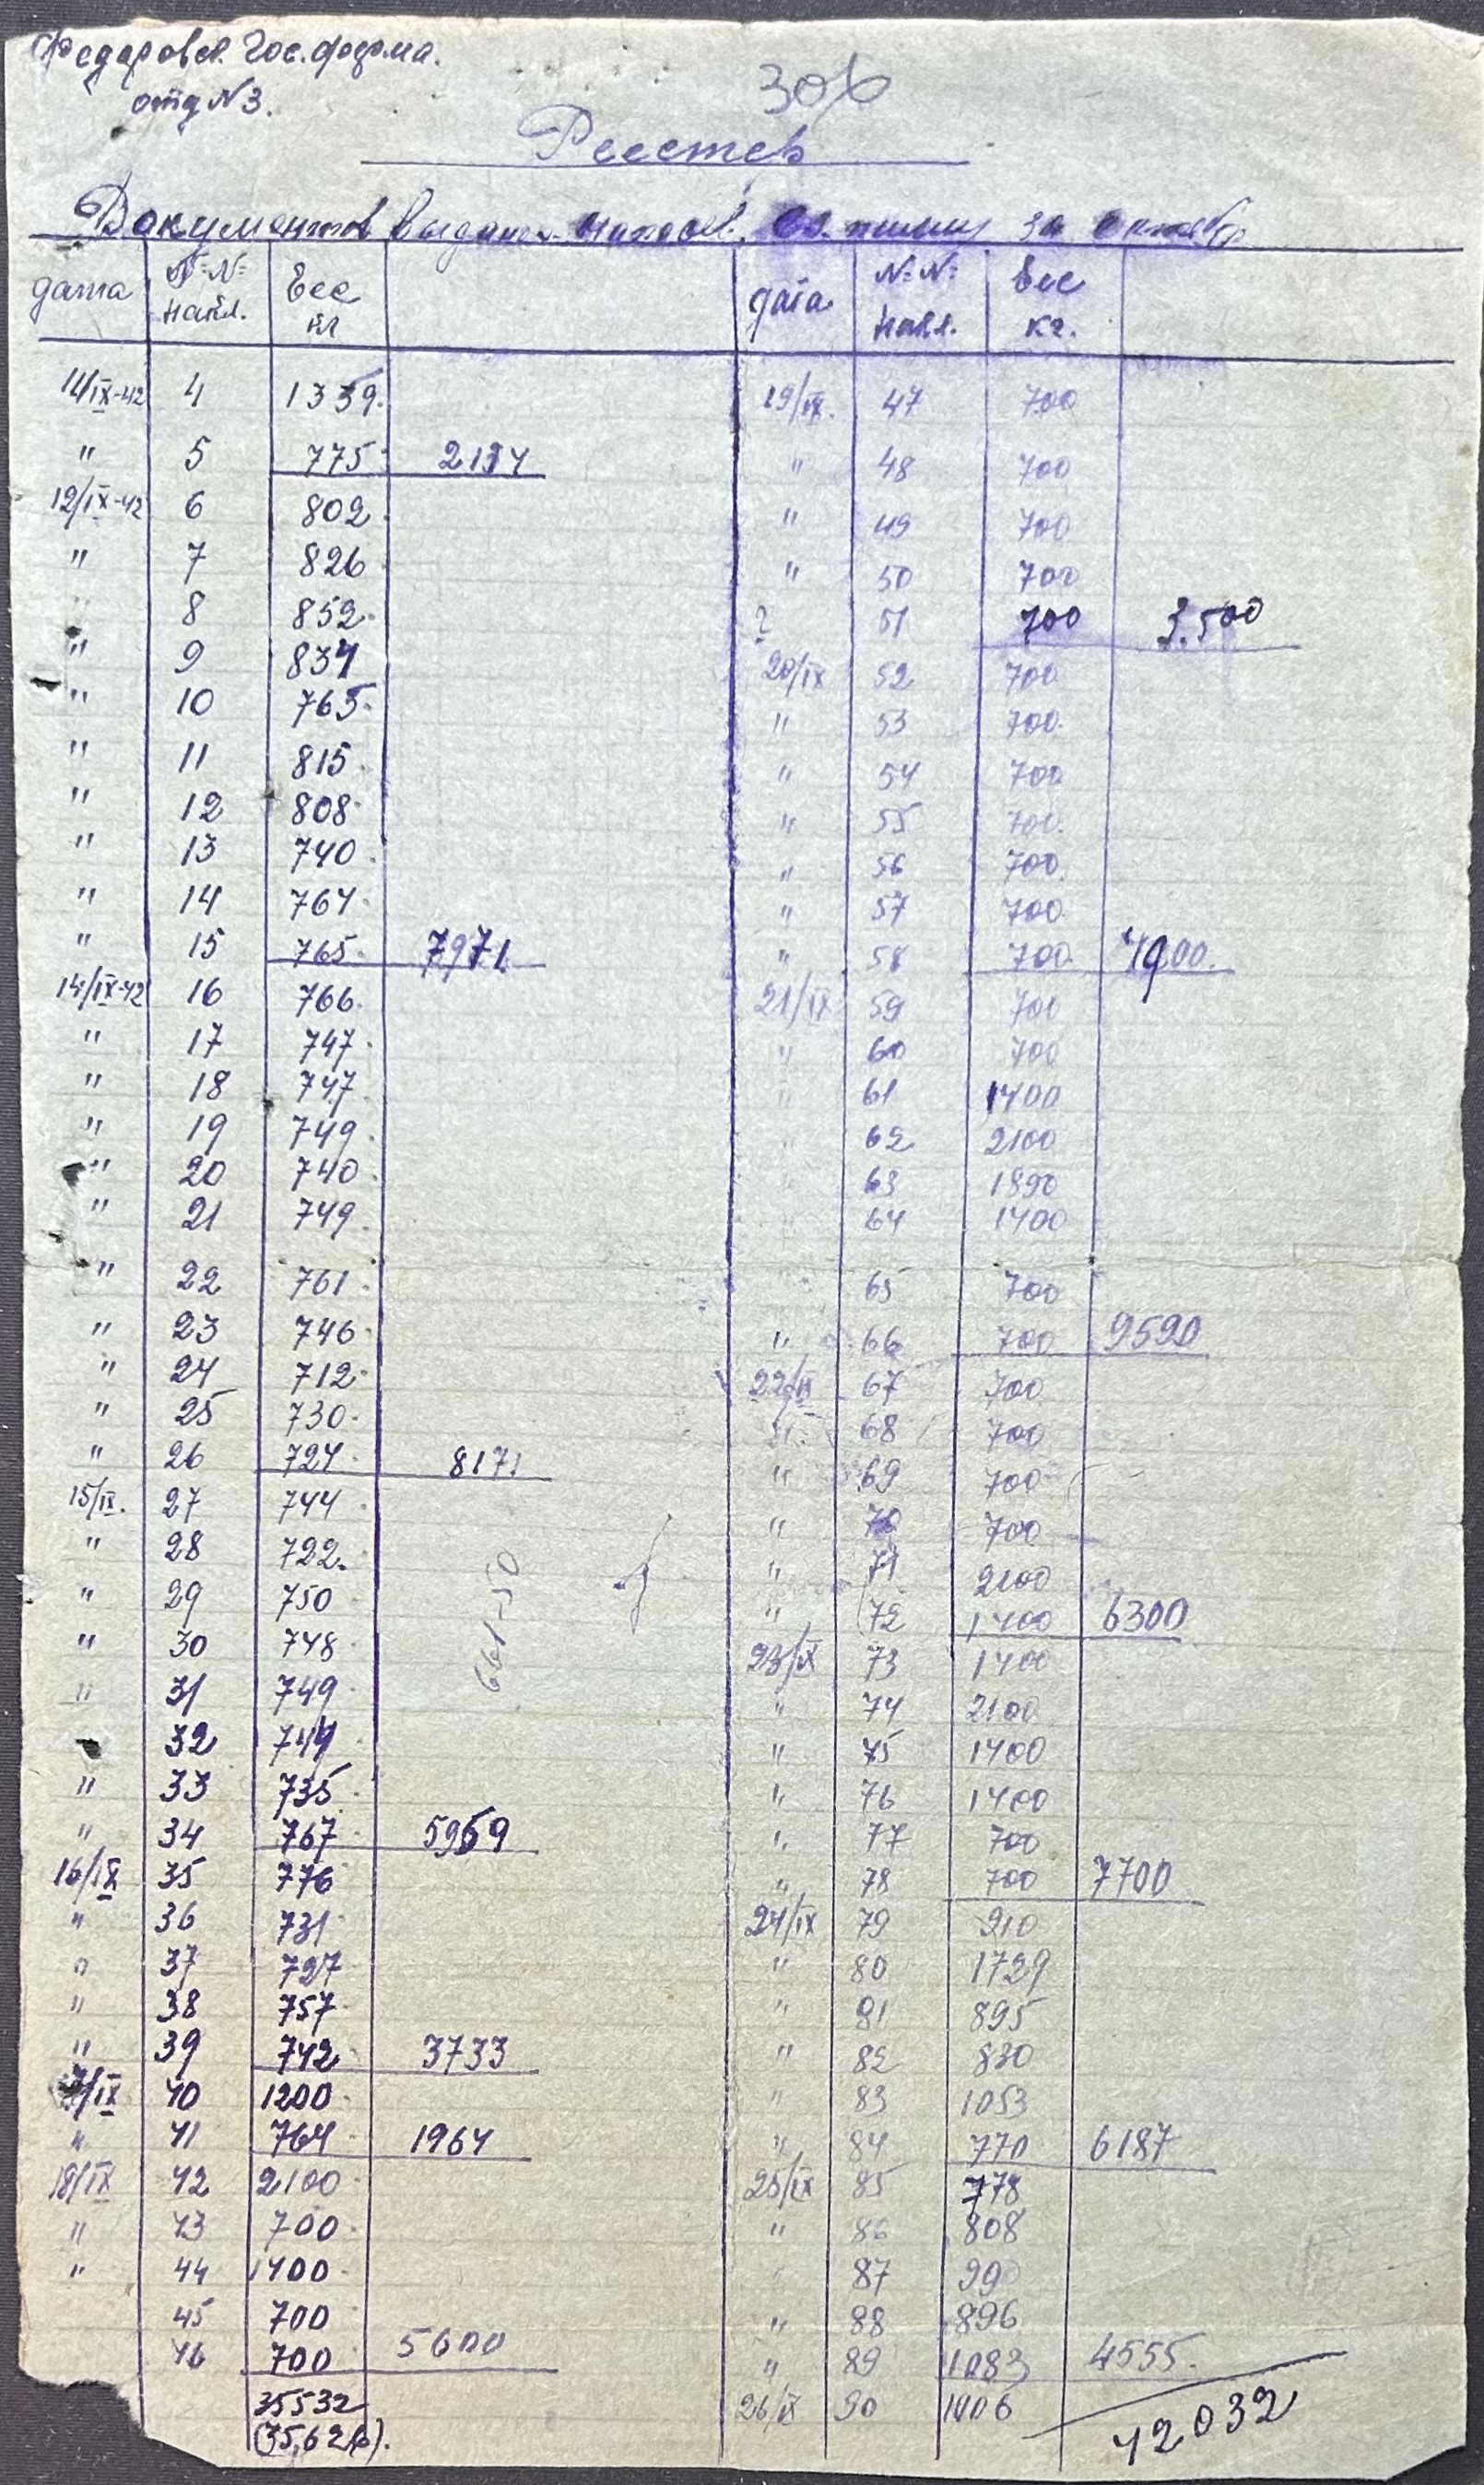 Федоровск. Гос. ферма.
отд № 3.
306
Реестер
Документов за октябрь
дата №№ накл. Вес кг
11/IX-42 4 1359
" 5 775 2134
12/IX-42 6 802
" 7 826
" 8 852
" 9 834
" 10 765
" 11 815
" 12 808
" 13 740
" 14 764
" 15 765 7971
14/IX-42 16 766
" 17 747
" 18 747
" 19 749
" 20 740
" 21 749
" 22 761
" 23 746
" 24 712
" 25 730
" 26 724 8171
15/IX. 27 744
" 28 722
" 29 750
" 30 748
" 31 749
32 744
" 33 735
" 34 767 5959
16/IX 35 776
" 36 731
" 37 727
" 38 757
" 39 742 3733
17/IX 40 1200
" 41 764 1964
18/IX 42 2100
" 43 700
" 44 1400
45 700
46 700 5600
35532
(35,62 ).
661-50
дата №№ накл. Вес кг.
19/IX. 47 700
" 48 700
" 49 700
" 50 700
51 700 3.500
20/IX 52 700
" 53 700
" 54 700
" 55 700
" 56 700
" 57 700
" 58 700 4900.
21/IX 59 700
" 60 700
" 61 1400
62 2100
63 1890
64 1400
65 700
" 66 700 9590
22/IX 67 700
" 68 700
" 69 700
" 70 700
" 71 2100
" 72 1400 6300
23/IX 73 1400
" 74 2100
" 75 1400
" 76 1400
" 77 700
" 78 700 7700
24/IX 79 910
" 80 1729
" 81 895
" 82 830
" 83 1053
" 84 770 6187
25/IX 85 778
" 86 808
87 990
" 88 896
" 89 1083 4555.
26/IX 90 1006
42032